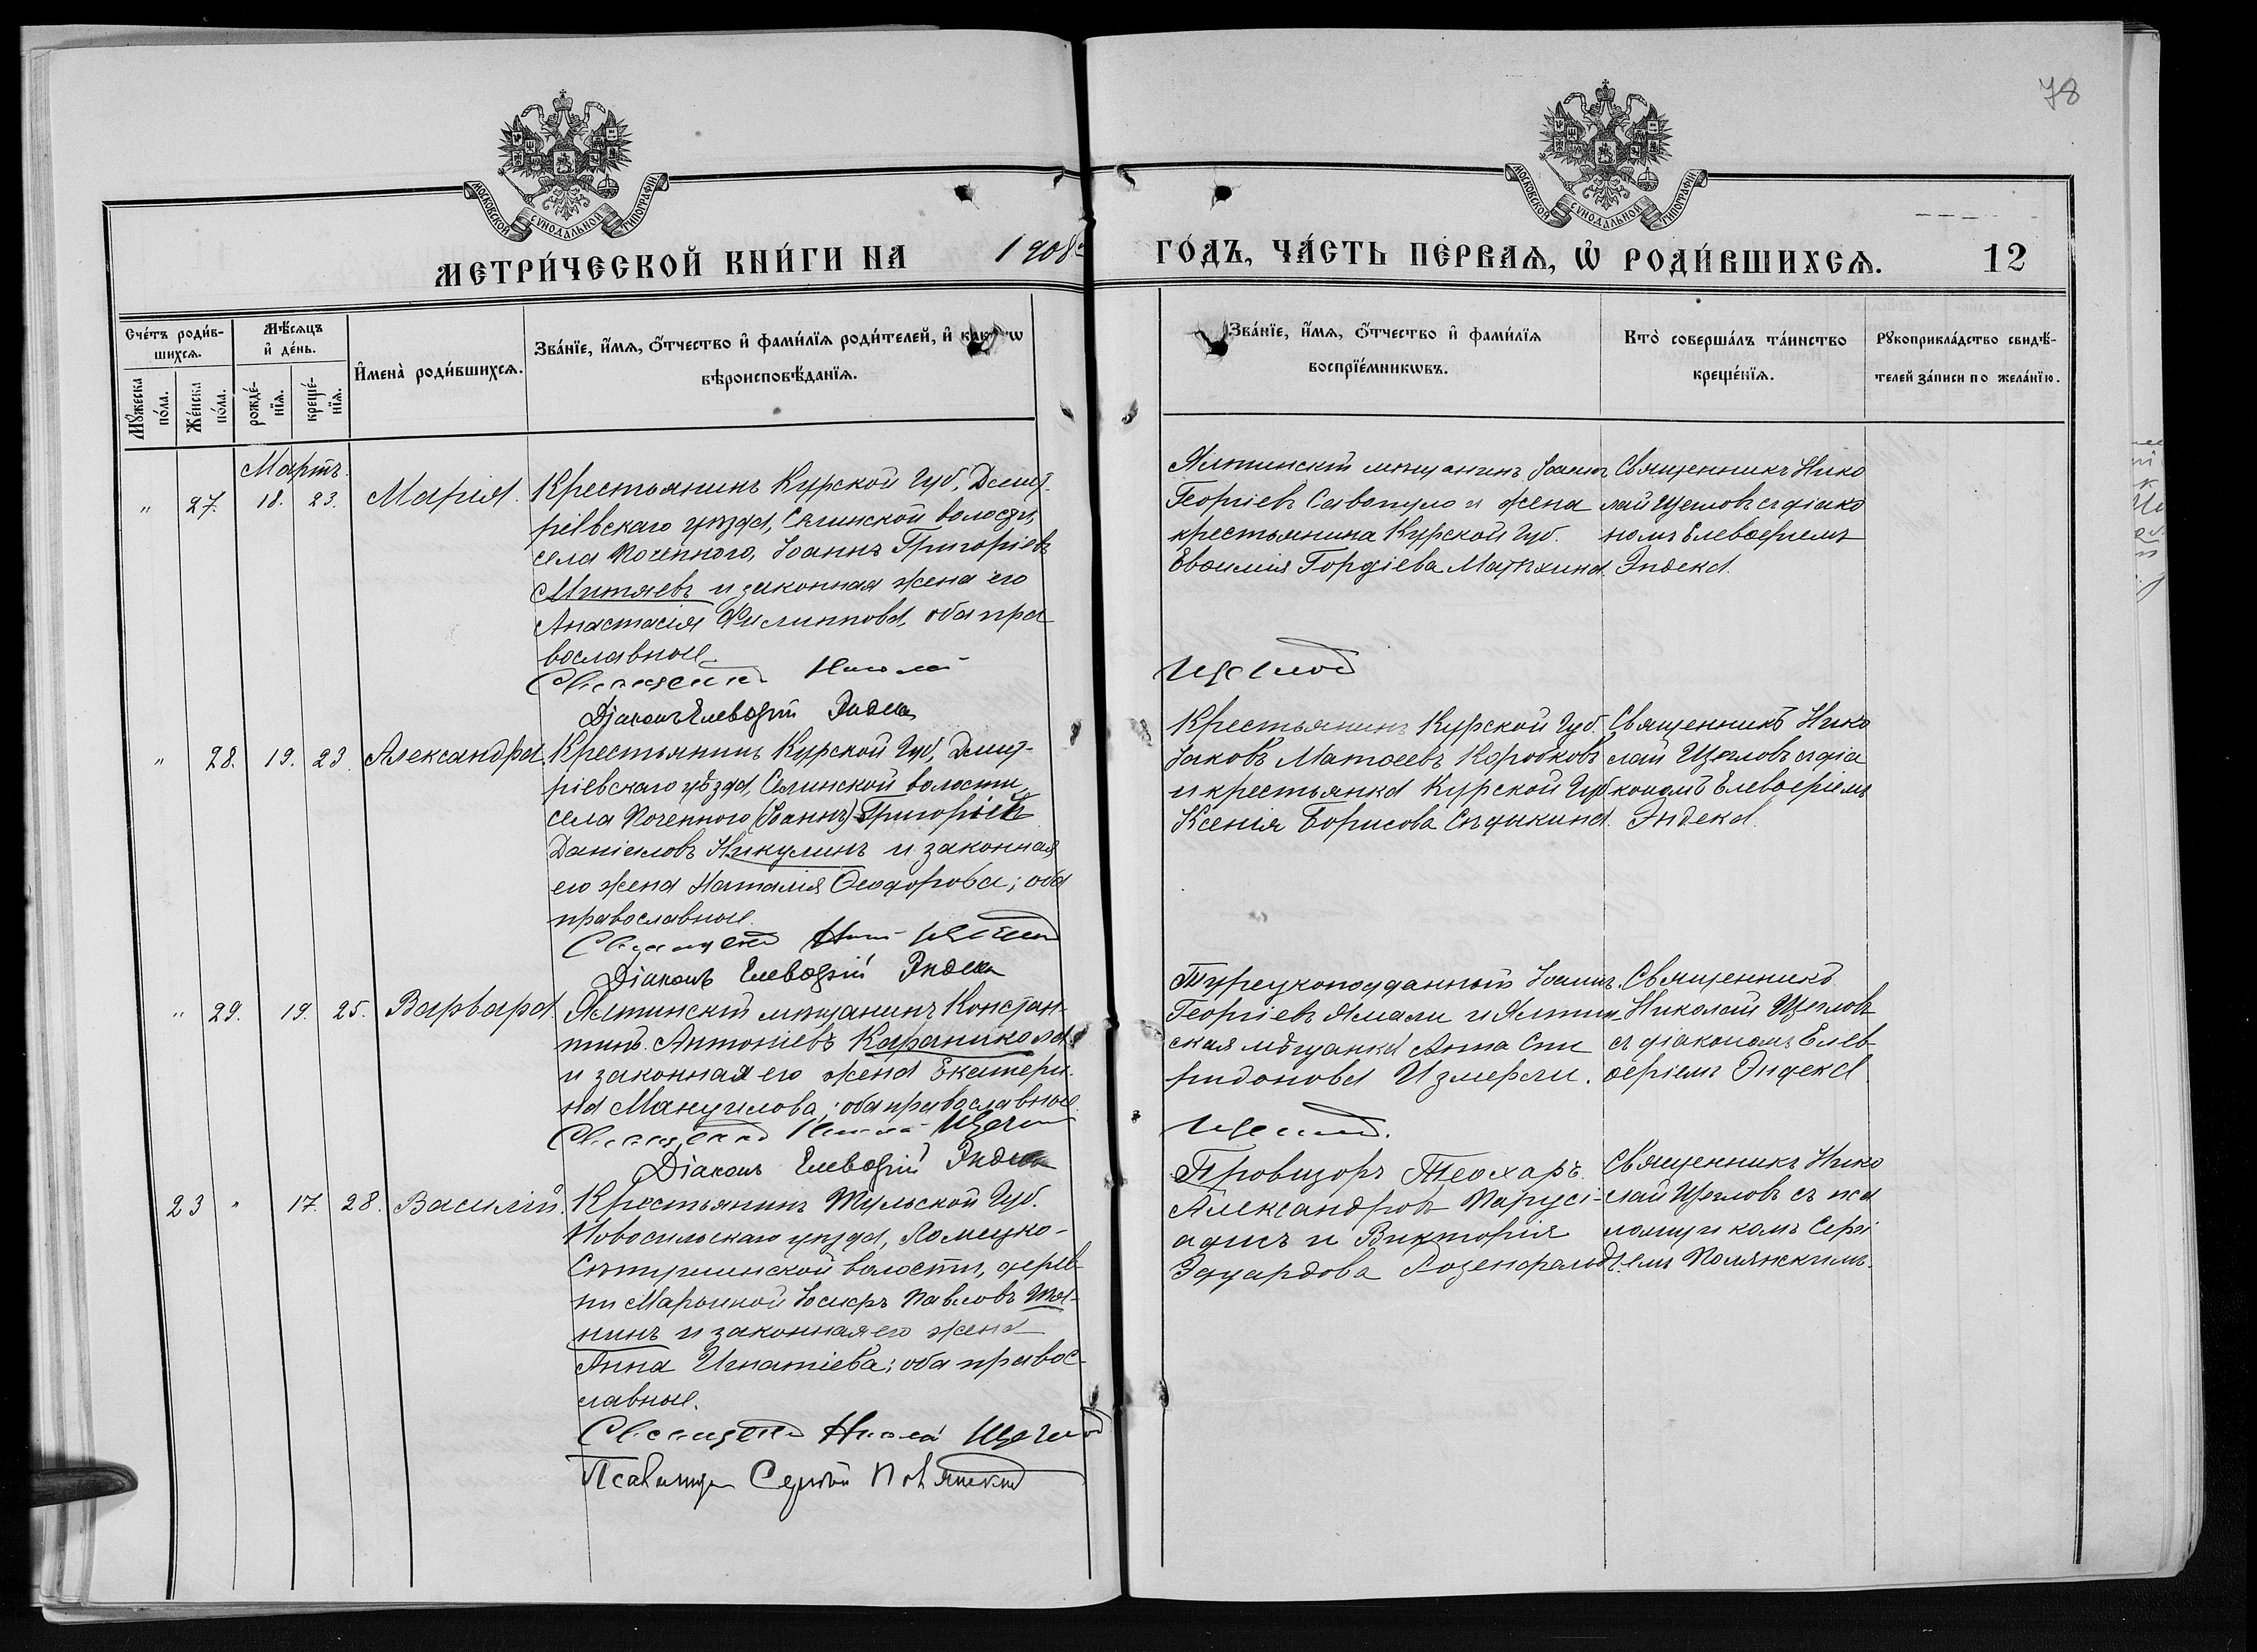 78
МОСКОВСКОЙ СѴНОДАЛЬНОЙ ТИПОГРАФІИ
МОСКОВСКОЙ СѴНОДАЛЬНОЙ ТИПОГРАФІИ
МЕТРИ́ЧЕСКОЙ КНИ́ГИ НА 1908й ГО́ДЪ, ЧА́СТЬ ПЕ́РВАѦ, Ѡ҆ РОДИ́ВШИХСѦ. 12
Сче́тъ роди́в-
шихсѧ.
Мꙋ́жеска по́ла.
Же́нска по́ла.
Мѣ́сѧцъ и҆ де́нь.
рожде́-
нїѧ.
креще́-
нїѧ.
И҆мена̀ роди́вшихсѧ.
Зва́нїе, и҆́мѧ, ѻ҆́тчество и҆ фами́лїѧ роди́телей, и҆ како́гѡ
вѣроисповѣ́данїѧ.
Зва́нїе, и҆́мѧ, ѻ҆́тчество и҆ фами́лїѧ
воспрїе́мникѡвъ.
Кто̀ соверша́лъ та́инство
креще́нїѧ.
Рꙋкоприкла́дство свидѣ́-
телей за́писи по жела́нїю.
Мартъ.
" 27. 18. 23. Марія.
Крестьянинъ Курской Губ., Дмит-
ріевскаго уѣзда, Селинской волости,
села Поченного, Іоаннъ Григоріевъ
Митяевъ и законная жена его
Анастасія Филиппова, оба пра
вославные.
Священникъ Николай Щегловъ
Діаконъ Елевѳерій Эндека
Ялтинскій мѣщанинъ Іоаннъ
Георгіевъ Савопуло и жена
крестьянина Курской Губ.
Евѳимія Гордіева Матюхина.
Священникъ Нико
лай Щегловъ съ діако
номъ Елевѳеріемъ
Эндека.
" 28. 19. 23. Александра.
Крестьянинъ Курской Губ., Дмит-
ріевскаго уѣзда, Селинской волости
села Поченного (Іоаннъ) Григорій
Даніиловъ Никулинъ и законная
его жена Наталія Ѳеодорова; оба
православные.
Священникъ Николай Щегловъ
Діаконъ Елевѳерій Эндека
Крестьянинъ Курской Губ.
Іаковъ Матѳеевъ Коробковъ
и крестьянка Курской Губ
Ксенія Борисова Сѣдыкина.
Священникъ Нико
лай Щегловъ съ діа
кономъ Елевѳеріемъ
Эндека.
" 29. 19. 25. Варвара
Ялтинскій мѣщанинъ Констан-
тинъ Антоніевъ Караникола
и законная его жена Екатери-
на Мануилова; оба православные.
Священникъ Николай Щегловъ
Діаконъ Елевѳерій Эндека
Турецкоподданный Іоаннъ
Георгіевъ Ямали и Ялтин-
ская мѣщанка Анна Спи
ридонова Измерли.
Священникъ
Николай Щегловъ
съ діакономъ Елев-
ѳеріемъ Эндека.
23 " 17. 28. Василій.
Крестьянинъ Тульской Губ.
Новосильскаго уѣзда,
волости, дерев-
ни Іосифъ Павловъ
и законная его жена
Анна Игнатіева; оба правос-
лавные.
Священникъ Николай Щегловъ
Псаломщикъ Сергій Полянскій
Провизоръ Теохаръ
Александровъ Паруси-
адисъ и Викторія
Эдуардова Розенфельдъ.
Священникъ Нико
лай Щегловъ съ пса
ломщикомъ Серг
емъ Полянскимъ.